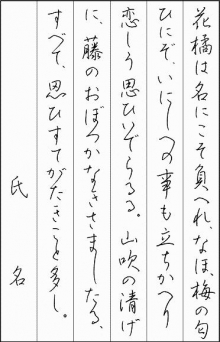 花橘は名にこそ負へれ、なほ、梅の匂
ひにぞ、いにしへの事も立ちかへり
恋しう思ひいでらるる。山吹の清げ
に、藤のおぼつかなきさましたる、
すべて、思ひすてがたきこと多し。
氏名